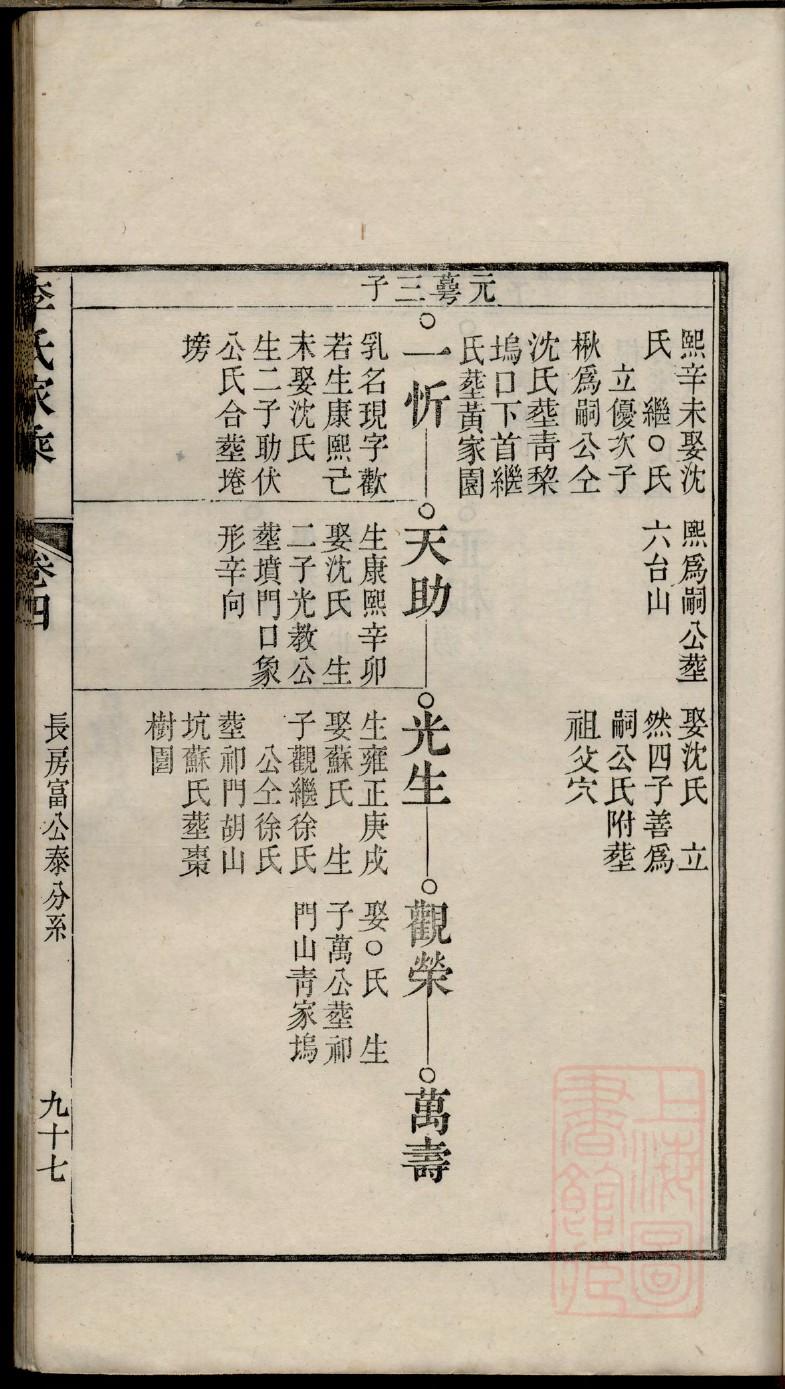 元蕚三子
熙辛未娶沈
氏　繼○氏
　立優次子
楸爲嗣公仝
沈氏塟靑棃
塢口下首繼
氏塟黃家園
熙爲嗣公塟
六台山
娶沈氏　立
然四子善爲
嗣公氏附塟
祖父穴
○一忻
乳名現字歡
若生康熙己
未娶沈氏
生二子助伏
公氏合塟埢
塝
○天助
生康熙辛卯
娶沈氏　生
二子光教公
塟墳門口象
形辛向
○光生
生雍正庚戌
娶蘇氏　生
子觀繼徐氏
　公仝徐氏
塟祁門胡山
坑蘇氏塟棗
樹園
○觀榮
娶○氏　生
子萬公塟祁
門山靑家塢
○萬壽
李氏家乘
卷四
長房富公泰分系
九十七
上海圖
書館藏